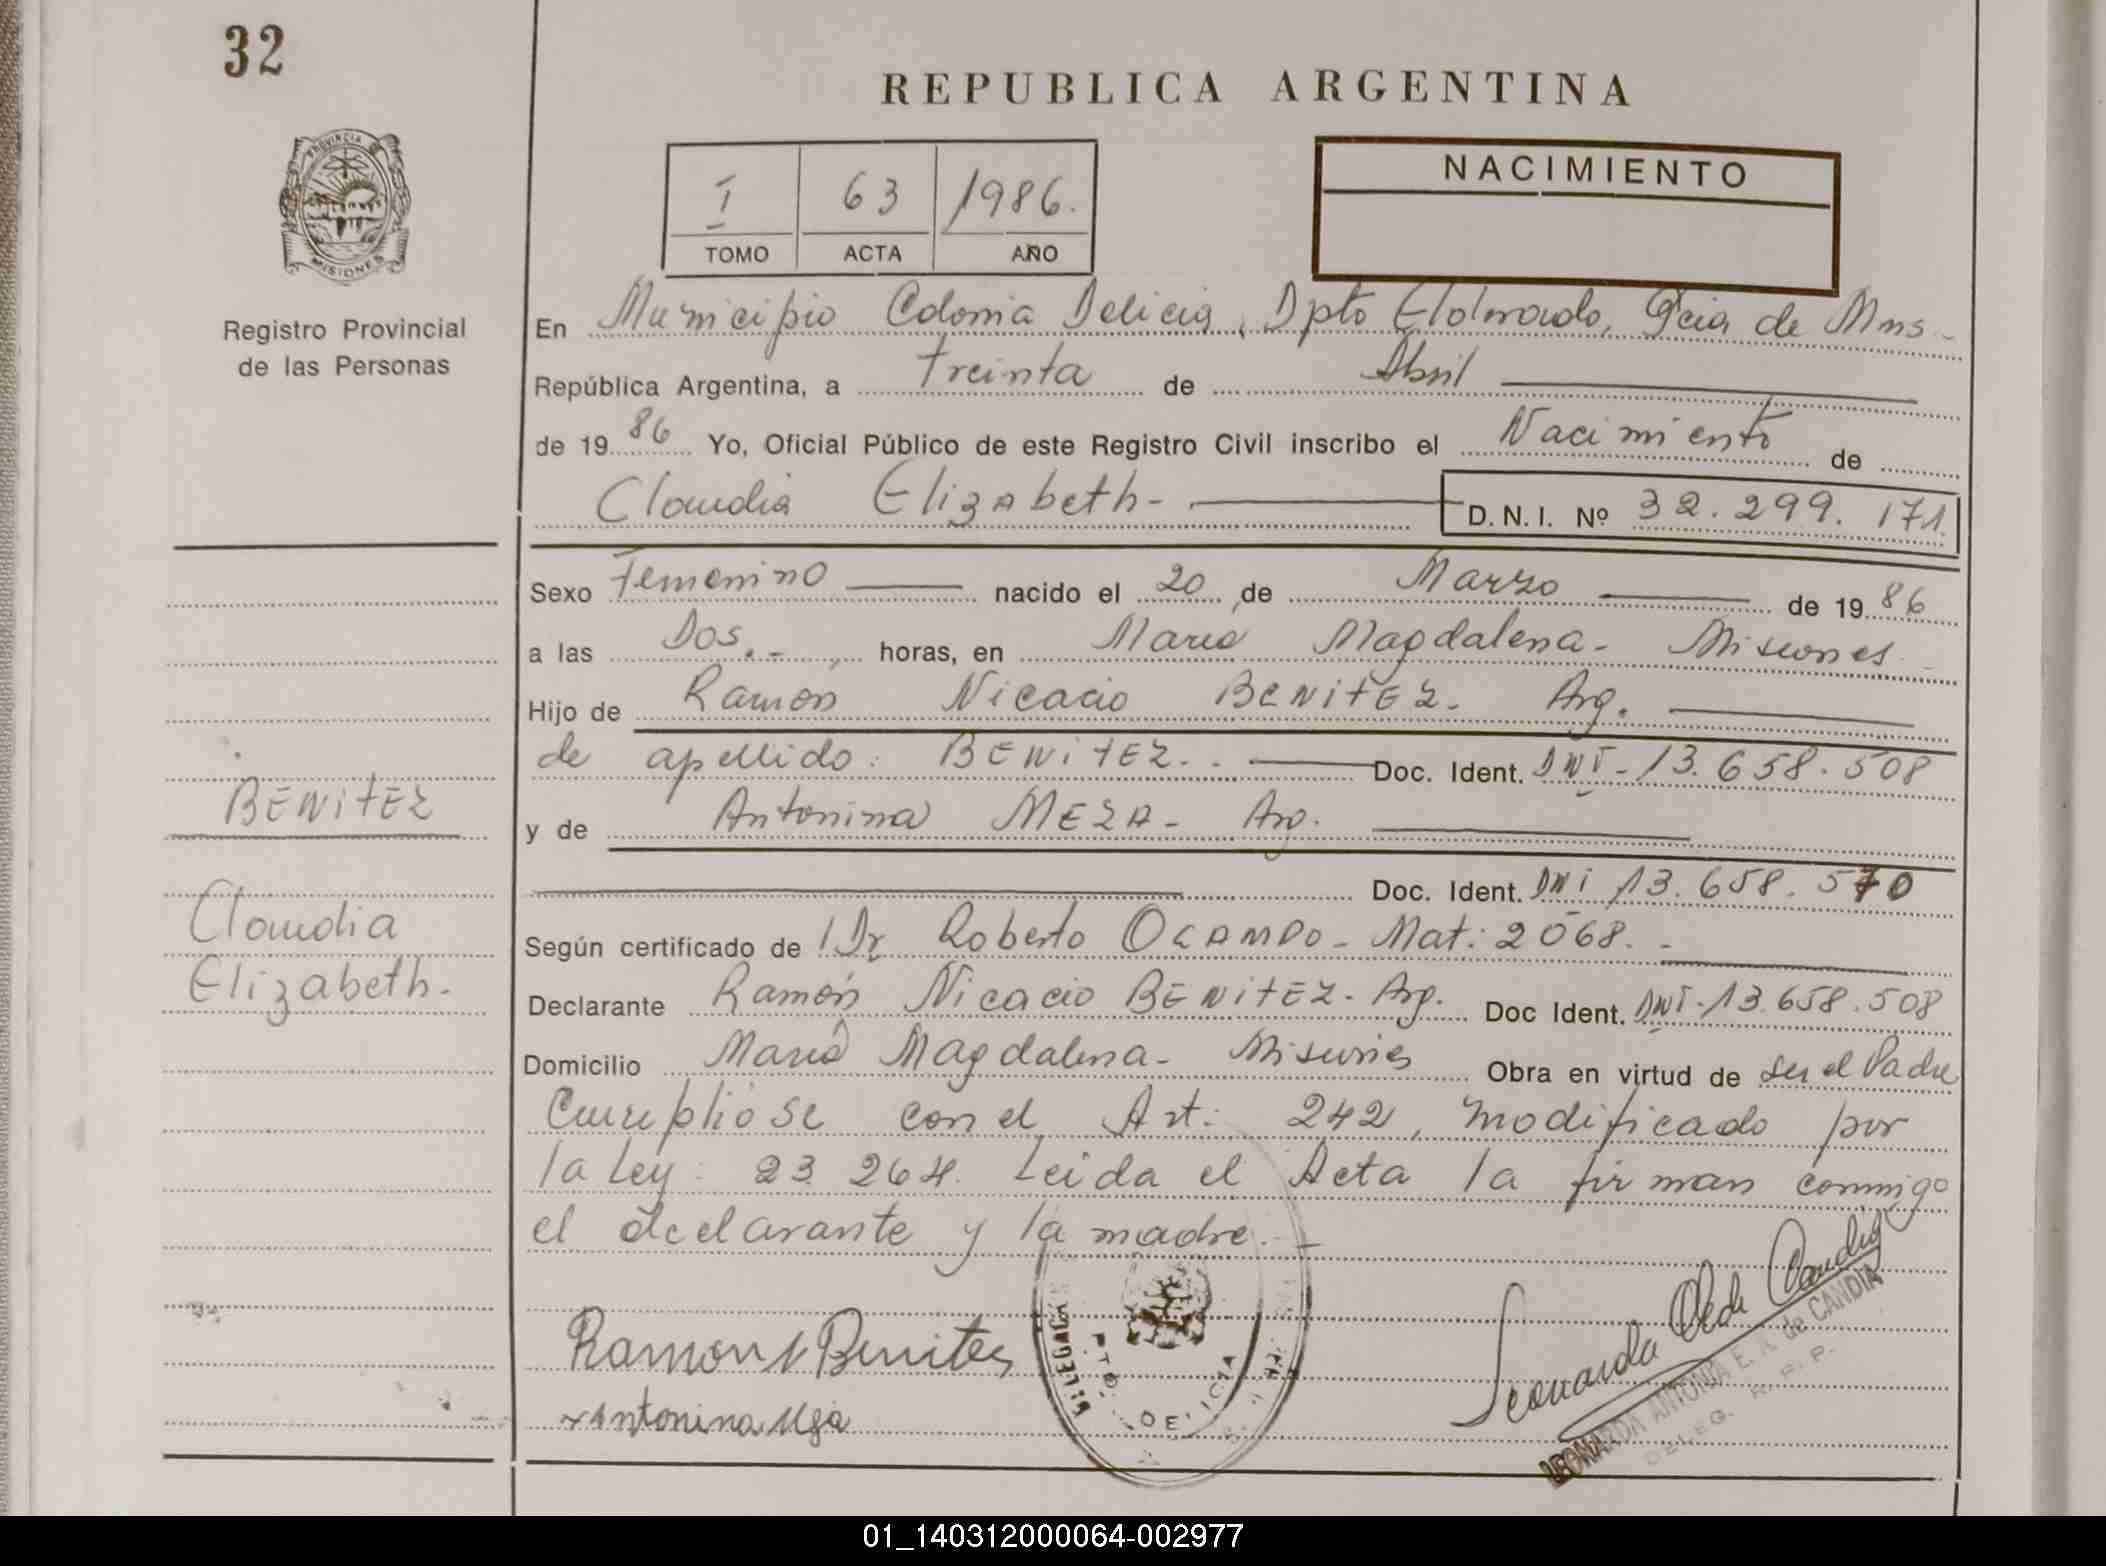 32
REPUBLICA ARGENTINA
PROVINCIA
MISIONES
I 63 1986.
TOMO ACTA AÑO
NACIMIENTO
Registro Provincial
de las Personas
En Municipio Colonia Delicia, Dpto Eldorado, Pcia de Mnes
República Argentina, a treinta de Abril
de 19 86 Yo, Oficial Público de este Registro Civil inscribo el Nacimiento de
Claudia Elizabeth- D.N.I. Nº 32.299.171
Sexo Femenino nacido el 20 de Marzo de 19 86
a las Dos.- horas, en María Magdalena- Misiones
Hijo de Ramón Nicacio BENITEZ- Arg.
de apellido: BENITEZ.. Doc. Ident. DNI-13.658.508
y de Antonina MEZA- Arg.
Doc. Ident. DNI 13.658.570
Según certificado de Dr Roberto OCAMPO- Mat: 2068.-
Declarante Ramón Nicacio BENITEZ- Arg. Doc Ident. DNI-13.658.508
Domicilio María Magdalena- Misiones Obra en virtud de ser el Padre
Cumpliose con el Art: 242, modificado por
la Ley: 23 264. Leida el Acta la firman conmigo
el declarante y la madre.-
BENITEZ
Claudia
Elizabeth-
Ramon N Benites
Antonina
PTO. DELICIA
LEONARDA ANTONIA E. de CANDIA
DELEG. R. P. P.
01_140312000064-002977